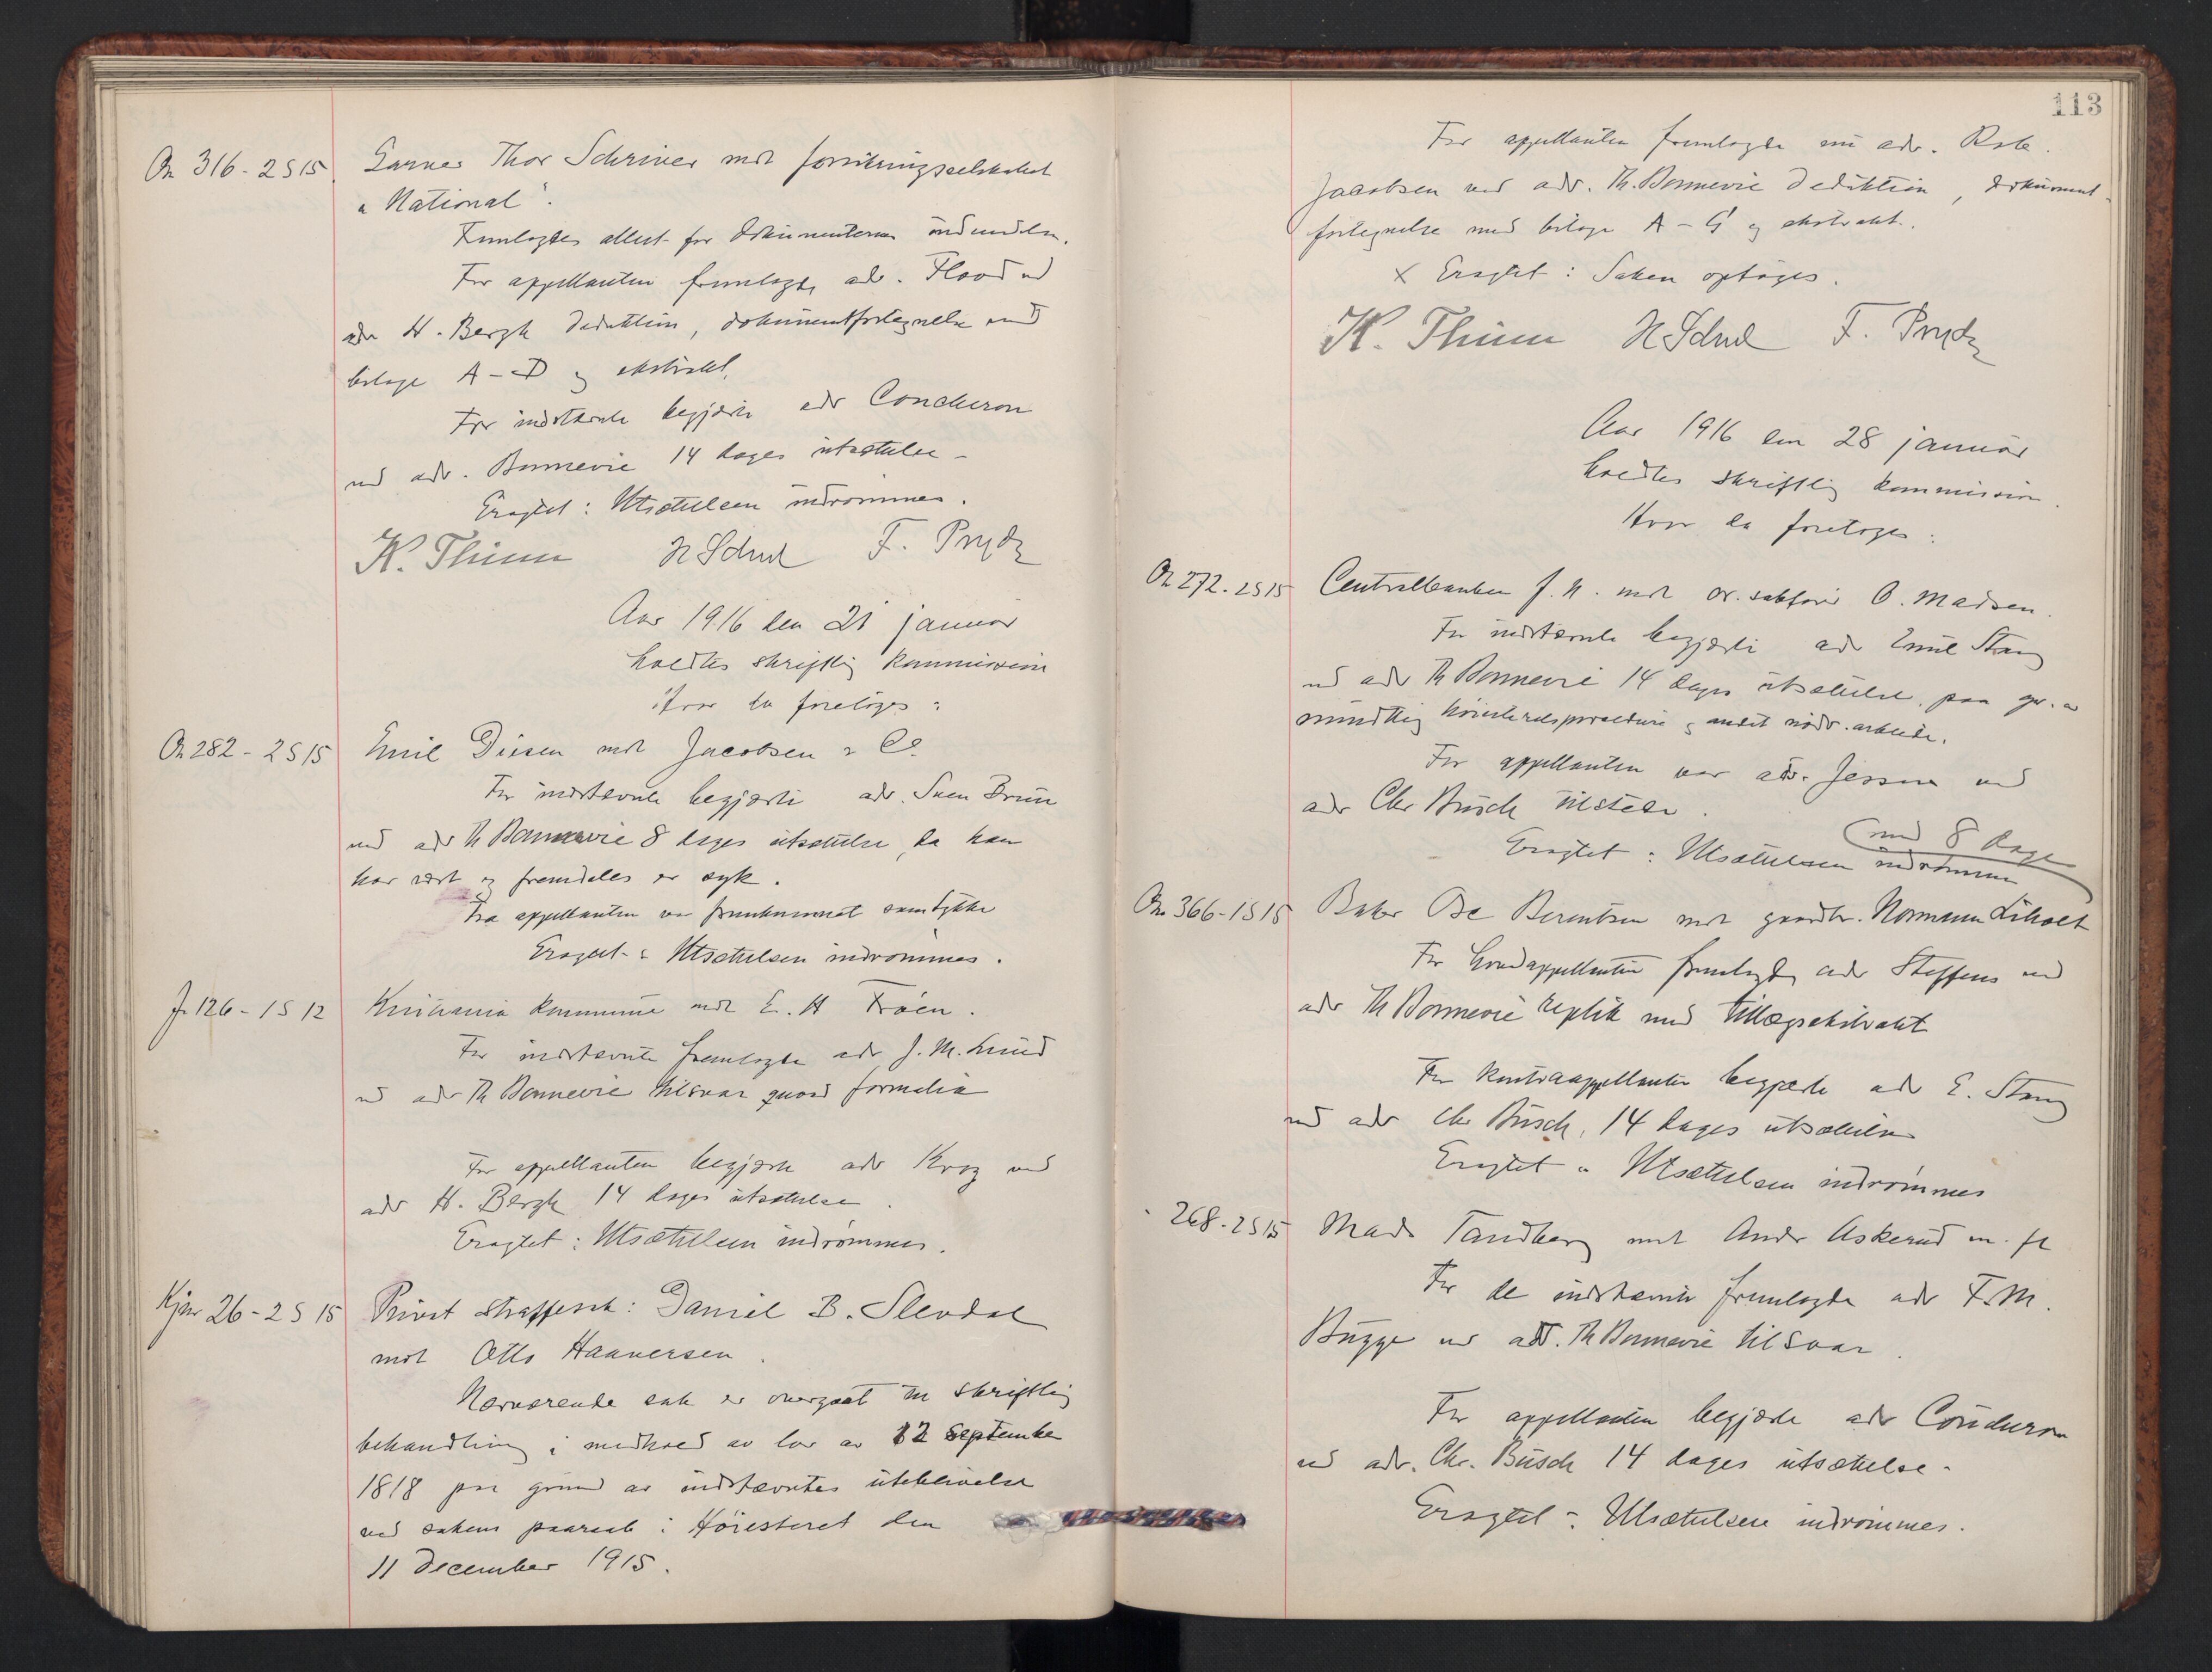 On 316-2S15 Garver Thor Schriver mot forsikringsselskabet
"National".
Fremlagdes attest for dokumenternes
For appellanten fremlagde adv. Flood ved
adv H. Bergh deduktion, dokumentfortegnelse med
bilage A-D og ekstrakt.
For indstævnte begjærte adv Conderon
ved adv. Bonnevie 14 dages utsættelse-
Eragtet: Utsættelsen indrømmes.
K. Thinn N Schul F. Prydz
Aar 1916 den 21 januar
holdtes skriftlig kommission
Hvor da foretoges:
On 282-2S15 Emil Diesen mot Jacobsen & Co.
For indstævnte begjærte adv. Sven Brun
ved adv Th Bonnevie 8 dages utsættelse, da han
har vært og fremdeles er syk.
Fra appellanten var fremkommet samtykke
Eragtet: Utsættelsen indrømmes.
J. 126-1S12 Kristiania kommune mot E. H Frøen.
For indstævnte fremlagde adv J. M. Lund
ved adv Th Bonnevie tilsvar quoad formalia
For appellanten begjærte adv Krog ved
adv H. Bergh 14 dages utsættelse.
Eragtet: Utsættelsen indrømmes.
Kjær 26-2S15 Privat straffesak: Daniel B. Slevdal
mot Otto Haaversen.
Nærværende sak er overgaat til skriftlig
behandling i medhold av lov av 12 september
1818 paa grund av indstævntes uteblivelse
ved sakens paarop i Høiesteret den
11 december 1915.
113
For appellanten fremlagde nu adv. Rolf
Jacobsen ved adv. Th. Bonnevie deduktion, dokument
fortegnelse med bilage A-G og ekstrakt.
x Eragtet: Saken optages.
K. Thinn N Schul F. Prydz
Aar 1916 den 28 januar
holdtes skriftlig kommission.
Hvor da foretoges:
On 272-2S15 Centralbanken f. N. mot or.sakfører O. Madsen.
For indstævnte begjærte adv Emil Stang
ved adv Th Bonnevie 14 dages utsættelse, paa gr. av
mundtlig høiesteretsprocedure og andet nødv. arbeide.
For appellanten var adv. Jessen ved
adv Chr Busch tilstede.
(med 8 dage
Eragtet: Utsættelsen indrømmes
On 366-1S15 Baker Berentsen mot gaardbr. Normann Liholt
For hovedappellanten fremlagde adv Steffens ved
adv Th Bonnevie replik med tillægsekstrakt
For kontraappellanten begjærte adv E. Stang
ved adv Chr Busch, 14 dages utsættelse
Eragtet: Utsættelsen indrømmes
268-2S15 Mads Tandberg mot Andr Askerud m. fl
For de indstævnte fremlagde adv F. M.
Bugge ved adv. Th Bonnevie tilsvar.
For appellanten begjærte adv Conderon
ved adv. Chr. Busch 14 dages utsættelse-
Eragtet: Utsættelsen indrømmes.